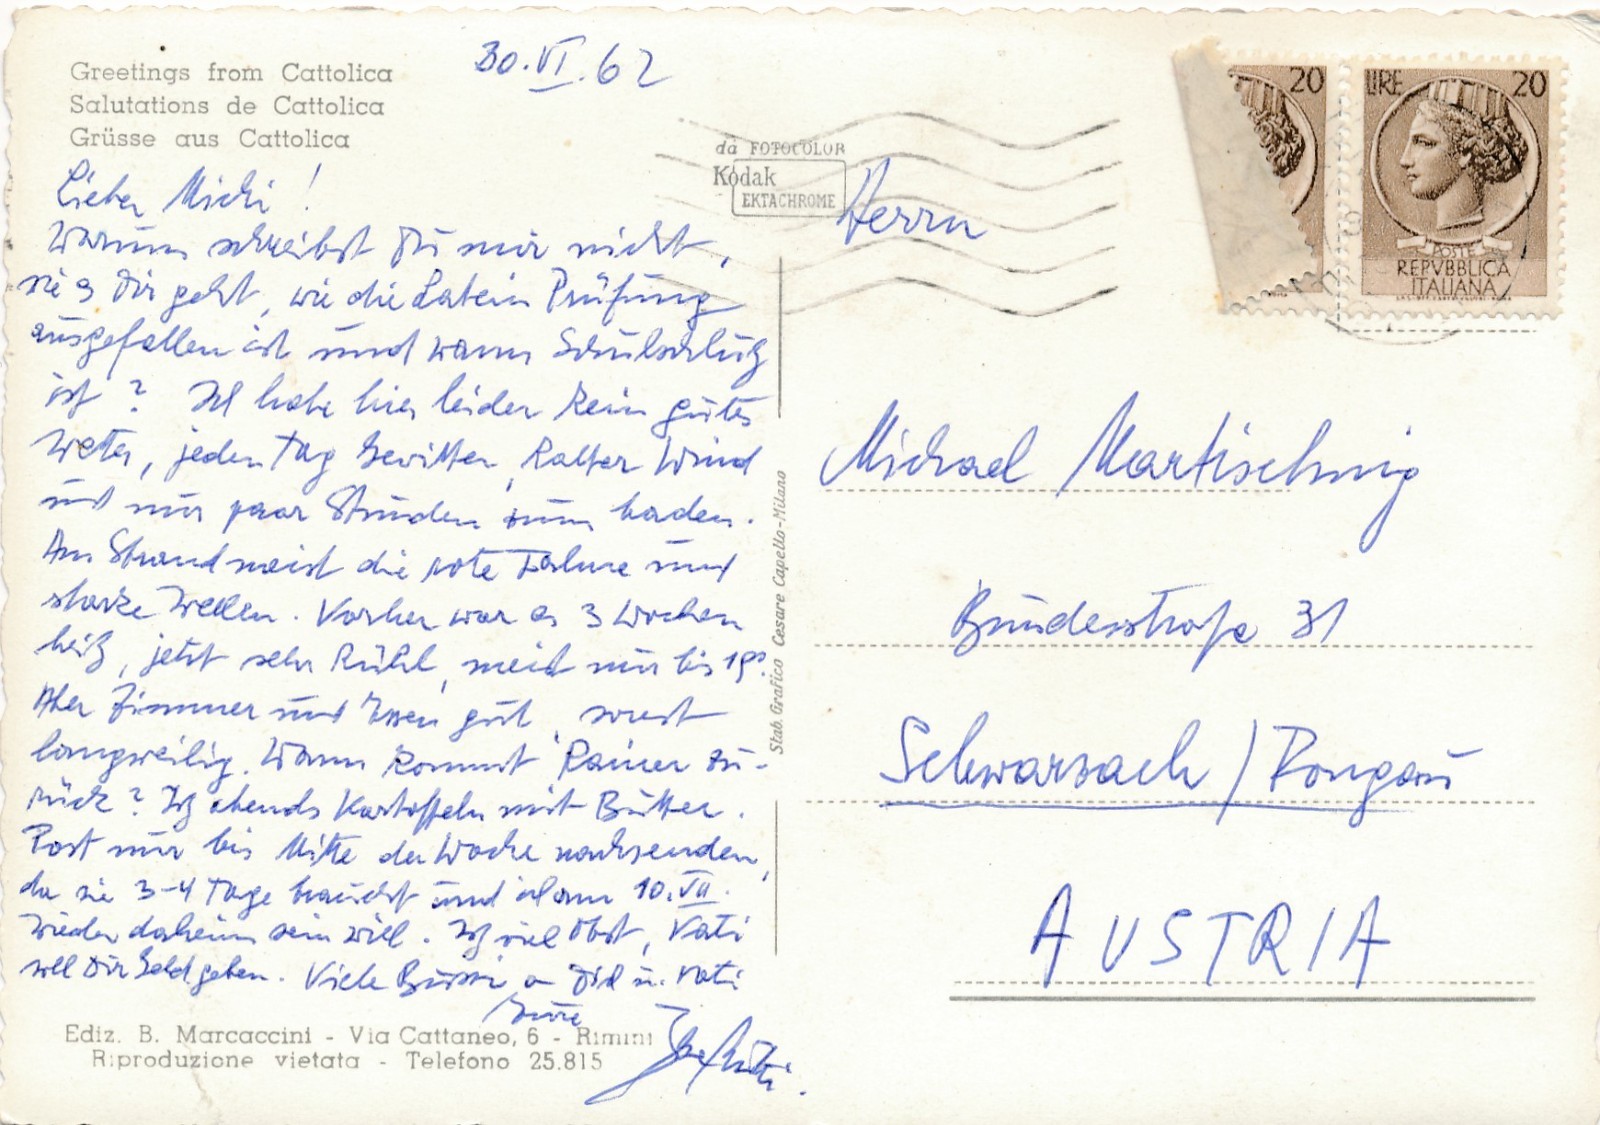 Greetings from Cattolica
Salutations de Cattolica
Grüsse aus Cattolica
30.VI.62
Lieber Michi!
Warum schreibst Du mir nicht,
wie es Dir geht, wie die Latein Prüfung
ausgefallen ist und wann Schulschluß
ist? Ich habe hier leider kein gutes
Wetter, jeden Tag Gewitter, kalter Wind
und nur paar Stunden zum baden.
Am Strand meist die rote Fahne und
starke Wellen. Vorher war es 3 Wochen
heiß, jetzt sehr kühl, meist nur bis 19°.
Aber Zimmer und Essen gut, sonst
langweilig. Wann kommt Rainer zu-
rück? Iß abends Kartoffeln mit Butter.
Post nur bis Mitte der Woche nachsenden,
da sie 3-4 Tage braucht und ich am 10.VII.
wieder daheim sein will. Iß viel Obst, Vati
soll Dir Geld geben. Viele Bussi an Dich u. Vati
Eure
Mutti.
Ediz. B. Marcaccini - Via Cattaneo, 6 - Rimini
Riproduzione vietata - Telefono 25.815
Stab. Grafico Cesare Capello-Milano
da FOTOCOLOR
Kodak
EKTACHROME
20
LIRE 20
POSTE
REPVBBLICA
ITALIANA
Herrn
Michael Martischnig
Bundesstraße 31
Schwarzach / Pongau
AUSTRIA